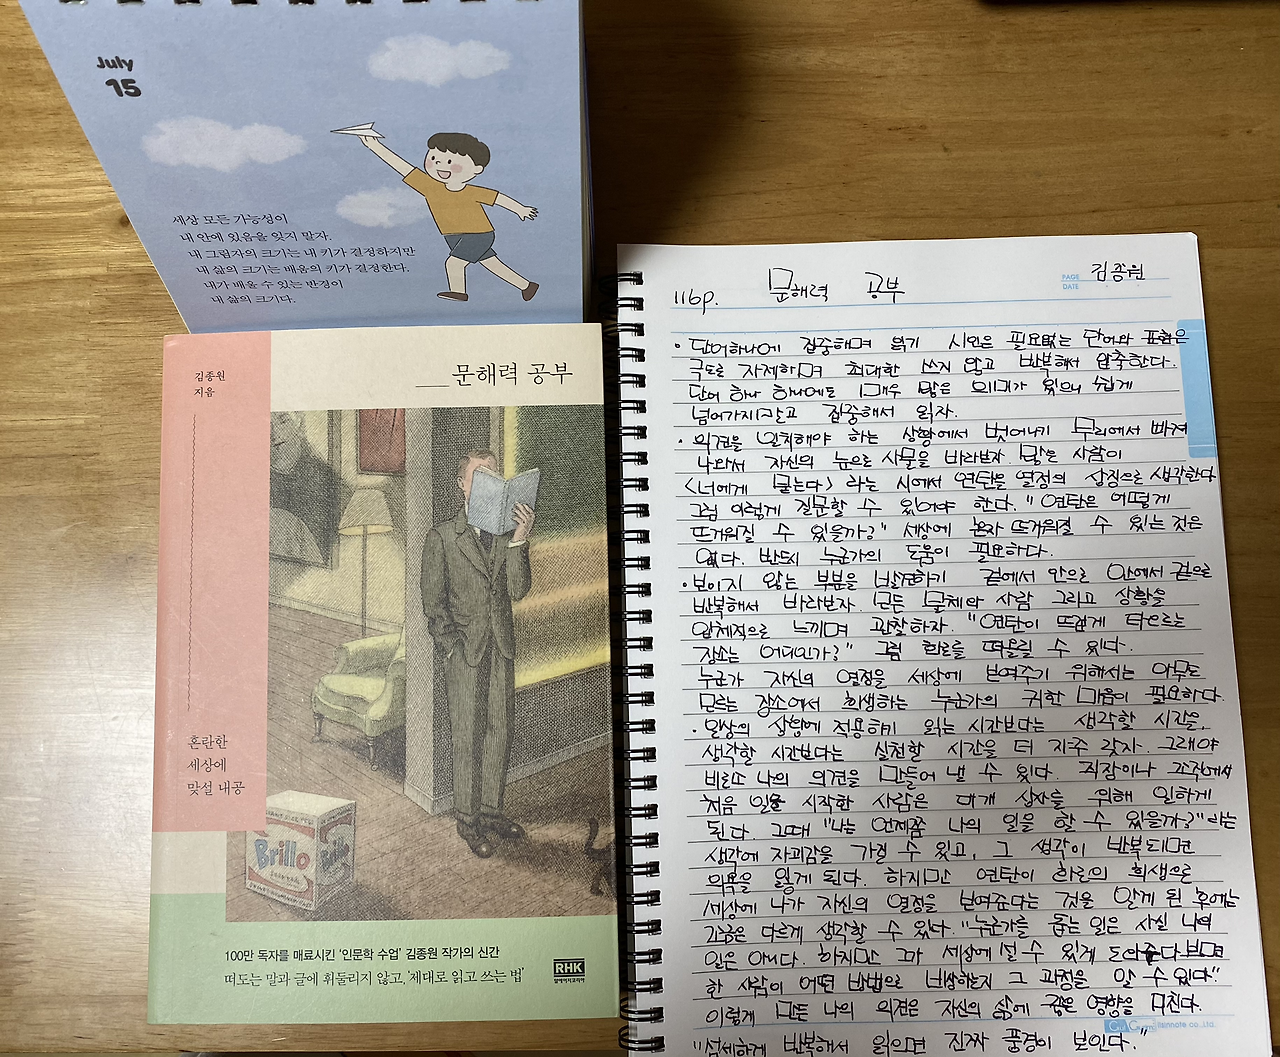 July
15
세상 모든 가능성이
내 안에 있음을 잊지 말자.
내 그림자의 크기는 내 키가 결정하지만
내 삶의 크기는 배움의 키가 결정한다.
내가 배울 수 있는 반경이
내 삶의 크기다.
김종원
지음
문해력 공부
혼란한
세상에
맞설 내공
Brillo
Brillo
100만 독자를 매료시킨 '인문학 수업' 김종원 작가의 신간
떠도는 말과 글에 휘둘리지 않고, '제대로 읽고 쓰는 법'
RHK
알에이치코리아
PAGE
DATE
김종원
116p. 문해력 공부
· 단어하나에 집중해며 읽기 시인은 필요없는 단어와 표현은
극도로 자제하며 최대한 쓰지 않고 반복해서 압축한다.
단어 하나 하나에도 매우 많은 의미가 있으니 쉽게
넘어가지말고 집중해서 읽자.
· 의견을 일치해야 하는 상황에서 벗어나기 무리에서 빠져
나와서 자신의 눈으로 사물을 바라보자. 많은 사람이
<너에게 묻는다> 라는 시에서 연탄을 열정의 상징으로 생각한다
그럼 이렇게 질문할 수 있어야 한다. "연탄은 어떻게
뜨거워질 수 있을까?" 세상에 혼자 뜨거워질 수 있는 것은
없다. 반드시 누군가의 도움이 필요하다.
· 보이지 않는 부분을 발견하기 겉에서 안으로 안에서 겉으로
반복해서 바라보자. 모든 물체와 사람 그리고 상황을
입체적으로 느끼며 관찰하자. "연탄이 뜨겁게 타오르는
장소는 어디인가?" 그럼 화로를 떠올릴 수 있다.
누군가 자신의 열정을 세상에 보여주기 위해서는 아무도
모르는 장소에서 희생하는 누군가의 귀한 마음이 필요하다.
· 일상의 상황에 적용하기 읽는 시간보다는 생각할 시간을,
생각할 시간보다는 실천할 시간을 더 자주 갖자. 그래야
비로소 나의 의견을 만들어 낼 수 있다. 직장이나 조직에서
처음 일을 시작한 사람은 대개 상사를 위해 일하게
된다. 그때 "나는 언제쯤 나의 일을 할 수 있을까?" 라는
생각에 자괴감을 가질 수 있고, 그 생각이 반복되면
의욕을 잃게 된다. 하지만 연탄이 화로의 희생으로
세상에 나가 자신의 열정을 보여준다는 것을 알게 된 후에는
조금은 다르게 생각할 수 있다. "누군가를 돕는 일은 사실 나의
일은 아니다. 하지만 그가 세상에 설 수 있게 도와준다보면
한 사람이 어떤 방법으로 비상하는지 그 과정을 알 수 있다."
이렇게 만든 나의 의견은 자신의 삶에 깊은 영향을 미친다.
"섬세하게 반복해서 읽으면 진짜 풍경이 보인다."